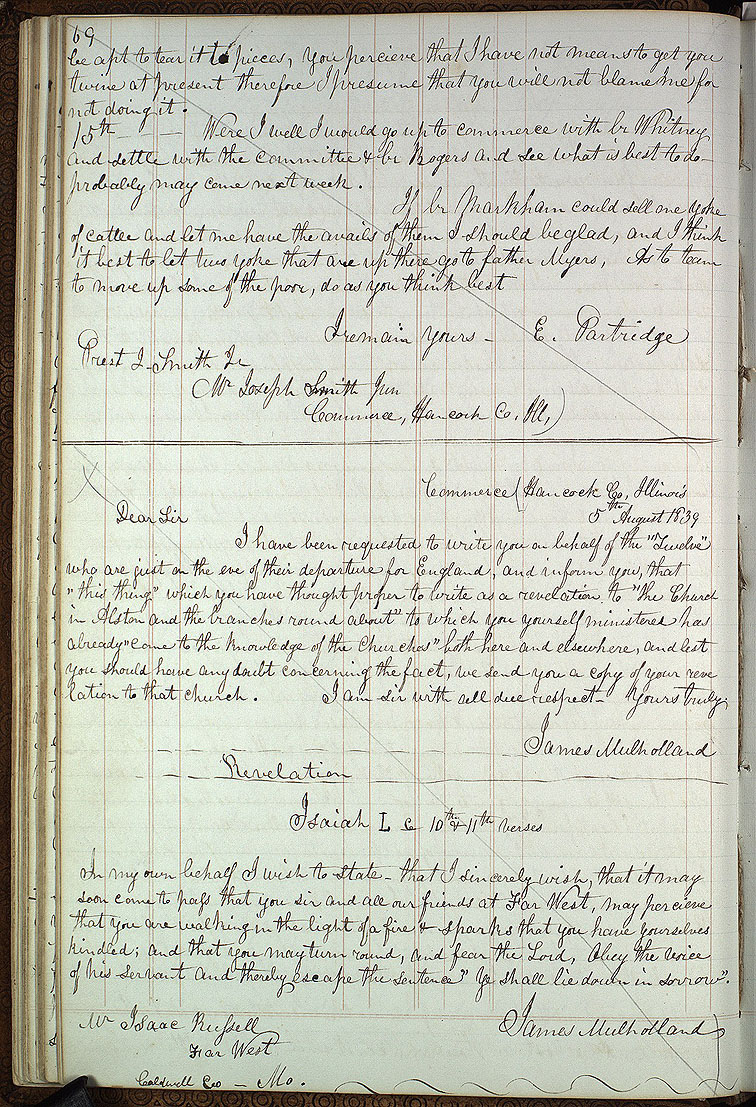 69
be apt to tear it to pieces, you percieve that I have not means to get you
twine at present therefore I presume that you will not blame me for
not doing it.
15th — Were I well I would go up to commerce with br Whitney
and settle with the committee & br Rogers and see what is best to do—
probably may come next week.
If br Markham could sell one yoke
of cattle and let me have the avails of them I should be glad, and I think
it best to let two yoke that are up there go to father Myers, As to team
to move up some of the poor, do as you think best
I remain yours — E. Partridge
Prest J. Smith Jr
Mr Joseph Smith Jun
Commerce, Hancock Co. Ill,)
Commerce (Hancock Co, Illinois
5th August 1839
Dear Sir
I have been requested to write you on behalf of the "Twelve"
who are just on the eve of their departure for England, and inform you, that
"this thing" which you have thought proper to write as a revelation to "the Church
in Alston and the branches round about" to which you yourself ministered has
already "come to the knowledge of the Churches" both here and elsewhere, and lest
you should have any doubt concerning the fact, we send you a copy of your reve
lation to that church. I am sir with all due respect— Yours truly,
James Mulholland
Revelation
Isaiah L c 10th & 11th verses
In my own behalf I wish to state— that I sincerely wish, that it may
soon come to pass that you sir and all our friends at Far West, may percieve
that you are walking in the light of a fire & sparks that you have yourselves
kindled; and that you may turn round, and fear the Lord, obey the voice
of his servant and thereby escape the sentence" Ye shall lie down in sorrow".
Mr Isaac Russell James Mulholland)
Far West
Caldwell Co — Mo.